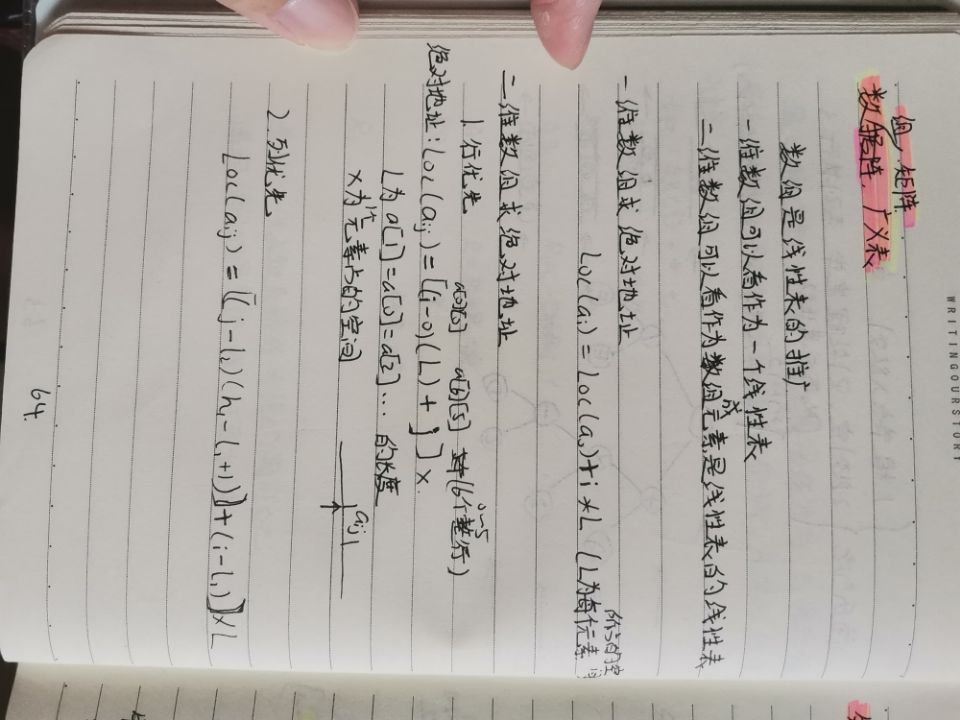 数组,矩阵,广义表
数组是线性表的推广
一维数组可以看作为一个线性表
二维数组可以看作为数组成元素是线性表的线性表
一维数组求绝对地址
Loc(ai) = Loc(a0) + i * L (L为每个元素所占的空间)
二维数组求绝对地址
1. 行优先 a[0][0] a[6][5] (6个整行) 0~5
绝对地址: Loc(aij) = [(i-0)(L) + j] x.
L为 a[1] = a[0] = a[2] ... 的长度
x为1个元素占的空间 aij
2. 列优先
Loc(aij) = [(j-l2)(h1-l1+1)] + (i-l1)] x L
64.
WRITINGOURSTORY